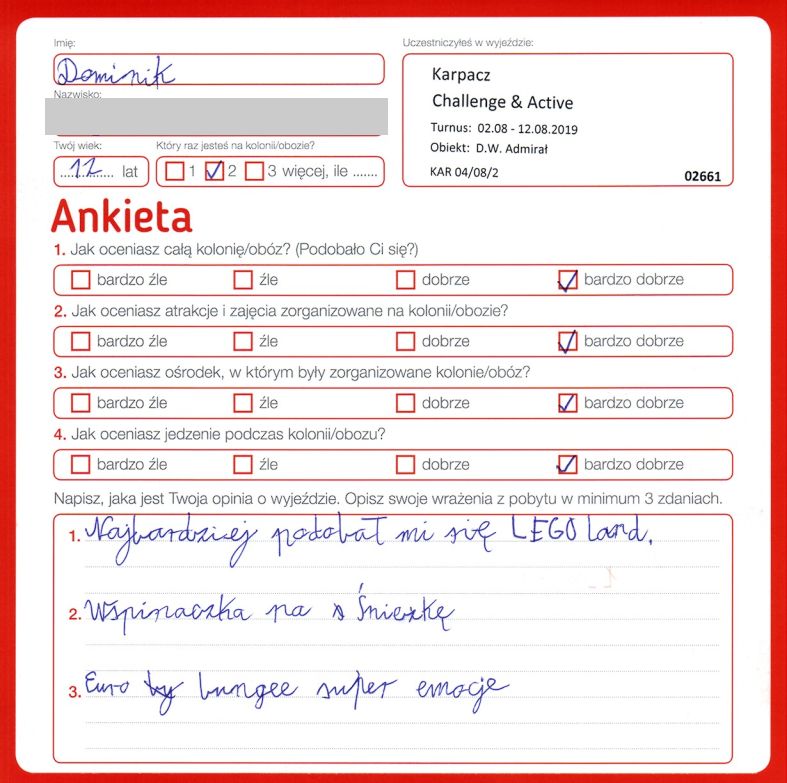 Imię:
Dominik
Nazwisko:
Twój wiek:
12 lat
Który raz jesteś na kolonii/obozie?
1 2 3 więcej, ile .......
Uczestniczyłeś w wyjeździe:
Karpacz
Challenge & Active
Turnus: 02.08 - 12.08.2019
Obiekt: D.W. Admirał
KAR 04/08/2 02661
Ankieta
1. Jak oceniasz całą kolonię/obóz? (Podobało Ci się?)
bardzo źle źle dobrze bardzo dobrze
2. Jak oceniasz atrakcje i zajęcia zorganizowane na kolonii/obozie?
bardzo źle źle dobrze bardzo dobrze
3. Jak oceniasz ośrodek, w którym były zorganizowane kolonie/obóz?
bardzo źle źle dobrze bardzo dobrze
4. Jak oceniasz jedzenie podczas kolonii/obozu?
bardzo źle źle dobrze bardzo dobrze
Napisz, jaka jest Twoja opinia o wyjeździe. Opisz swoje wrażenia z pobytu w minimum 3 zdaniach.
1. Najbardziej podobał mi się LEGO land.
2. Wspinaczka na Śnieżkę
3. Euro bungee super emocje